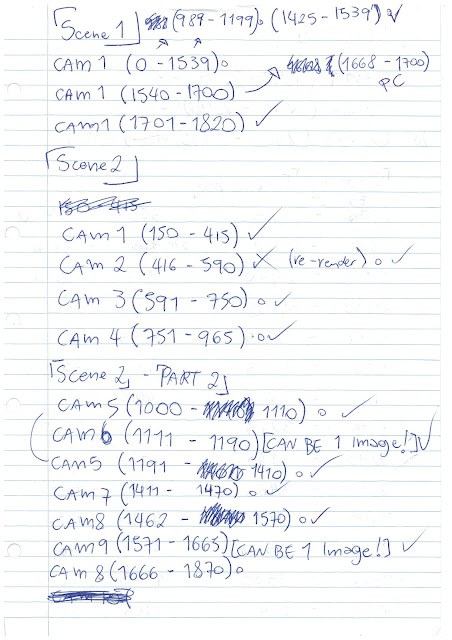 Scene 1 (989 - 1199)o (1425 - 1539) ✓
CAM 1 (0 - 1539)o
CAM 1 (1540 - 1700) → (1668 - 1700)
PC
CAM 1 (1701 - 1820) ✓
Scene 2
CAM 1 (150 - 415) ✓
CAM 2 (416 - 590) X (re-render) o ✓
CAM 3 (591 - 750) o ✓
CAM 4 (751 - 965) o ✓
Scene 2 - PART 2
CAM 5 (1000 - 1110) o ✓
CAM 6 (1111 - 1190) [CAN BE 1 Image!] ✓
CAM 5 (1191 - 1410) o ✓
CAM 7 (1411 - 1470) o ✓
CAM 8 (1462 - 1570) o ✓
CAM 9 (1571 - 1665) [CAN BE 1 Image!] ✓
CAM 8 (1666 - 1870) o